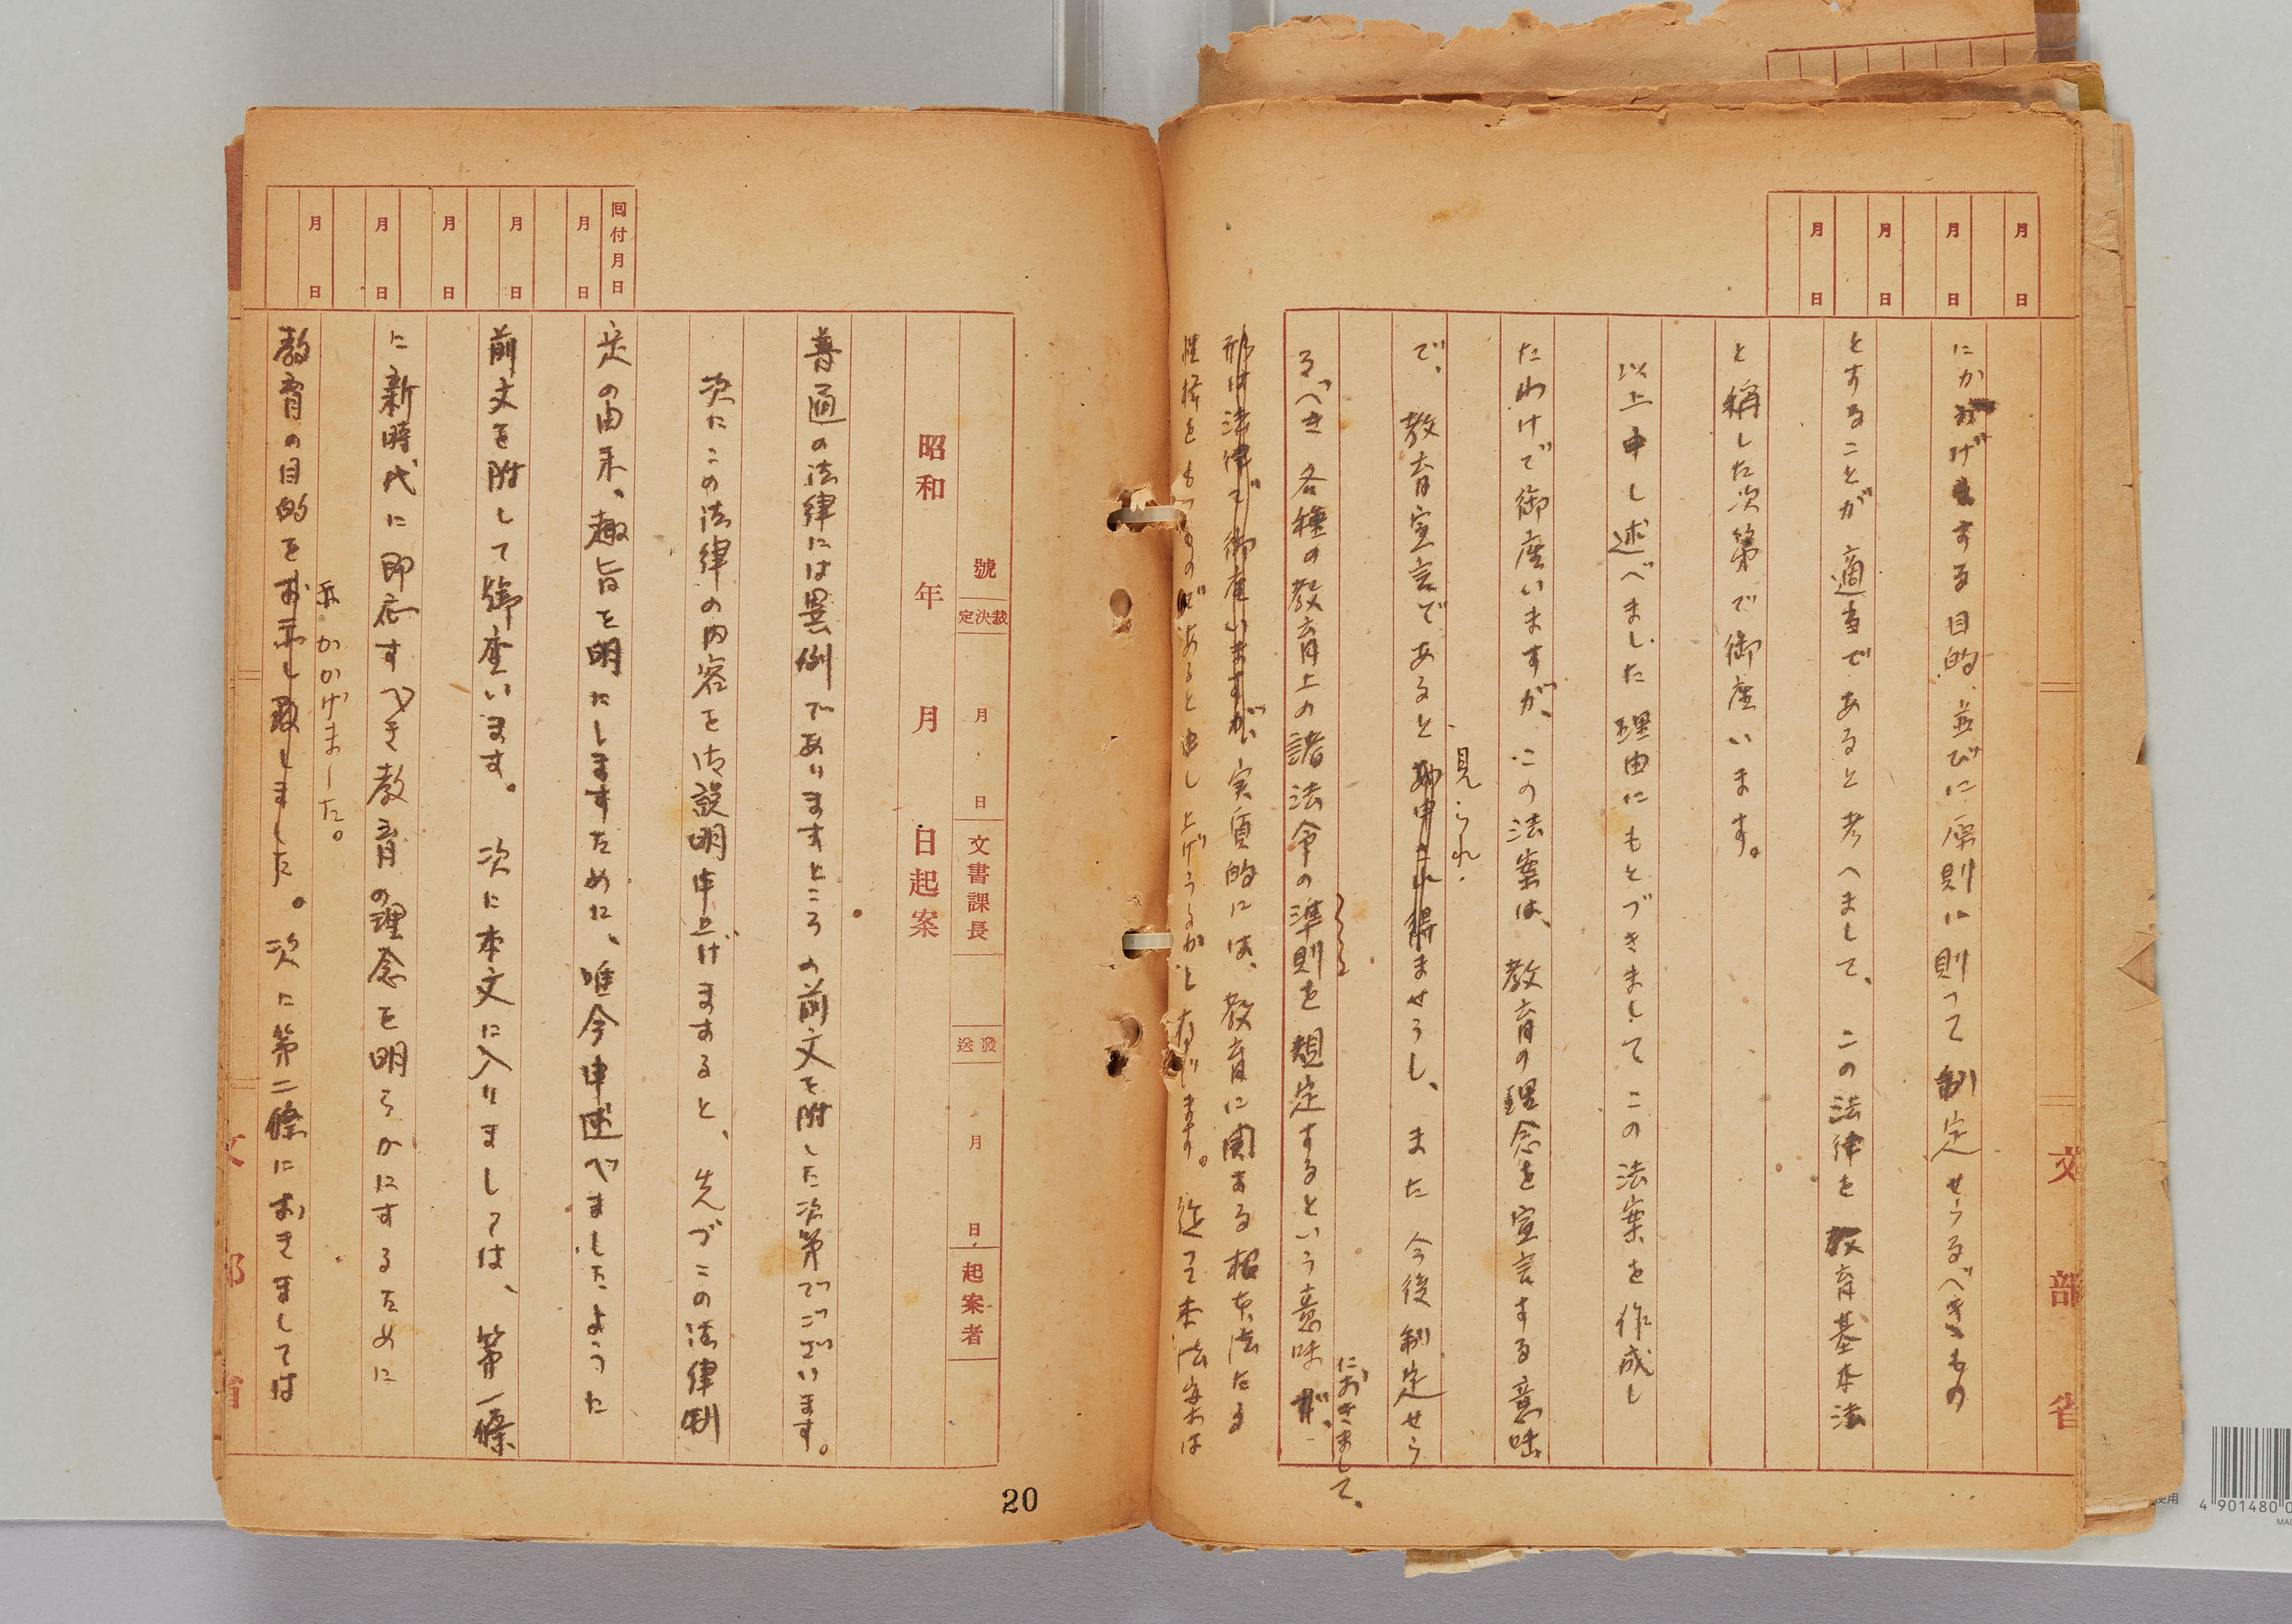 月 日
月 日
月 日
月 日
文部省
にかかげまする目的並びに原則に則って制定せらるべきもの
とすることが適当であると考へまして、この法律を教育基本法
と稱した次第で御座います。
以上申し述べました理由にもとづきましてこの法案を作成し
たわけで御座いますが、この法案は、教育の理念を宣言する意味
で、教育宣言であると
見られ
ませうし、また今後制定せら
るべき各種の教育上の諸法令の準則を規定するという意味
が、
におきまして、
形は法律で御座いますが、実質的には、教育に関する根本法たる
性格をもつものであると申し上げうるかと存じます。従って本法案は
號
裁決定
月 日
文書課長
發送
月 日
起案者
昭和 年 月 日起案
普通の法律には異例でありますところの前文を附した次第でございます。
次にこの法律の内容を御説明申上げますると、先づこの法律制
定の由来、趣旨を明にしますために、唯今申述べましたように
前文を附して御座います。次に本文に入りましては、第一條
に新時代に即応すべき教育の理念を明らかにするために
かかげました。
教育の目的を
お示し致しました。次に第二條におきましては
回付月日
月 日
月 日
月 日
月 日
月 日
文部省
20
4 901480 0
使用